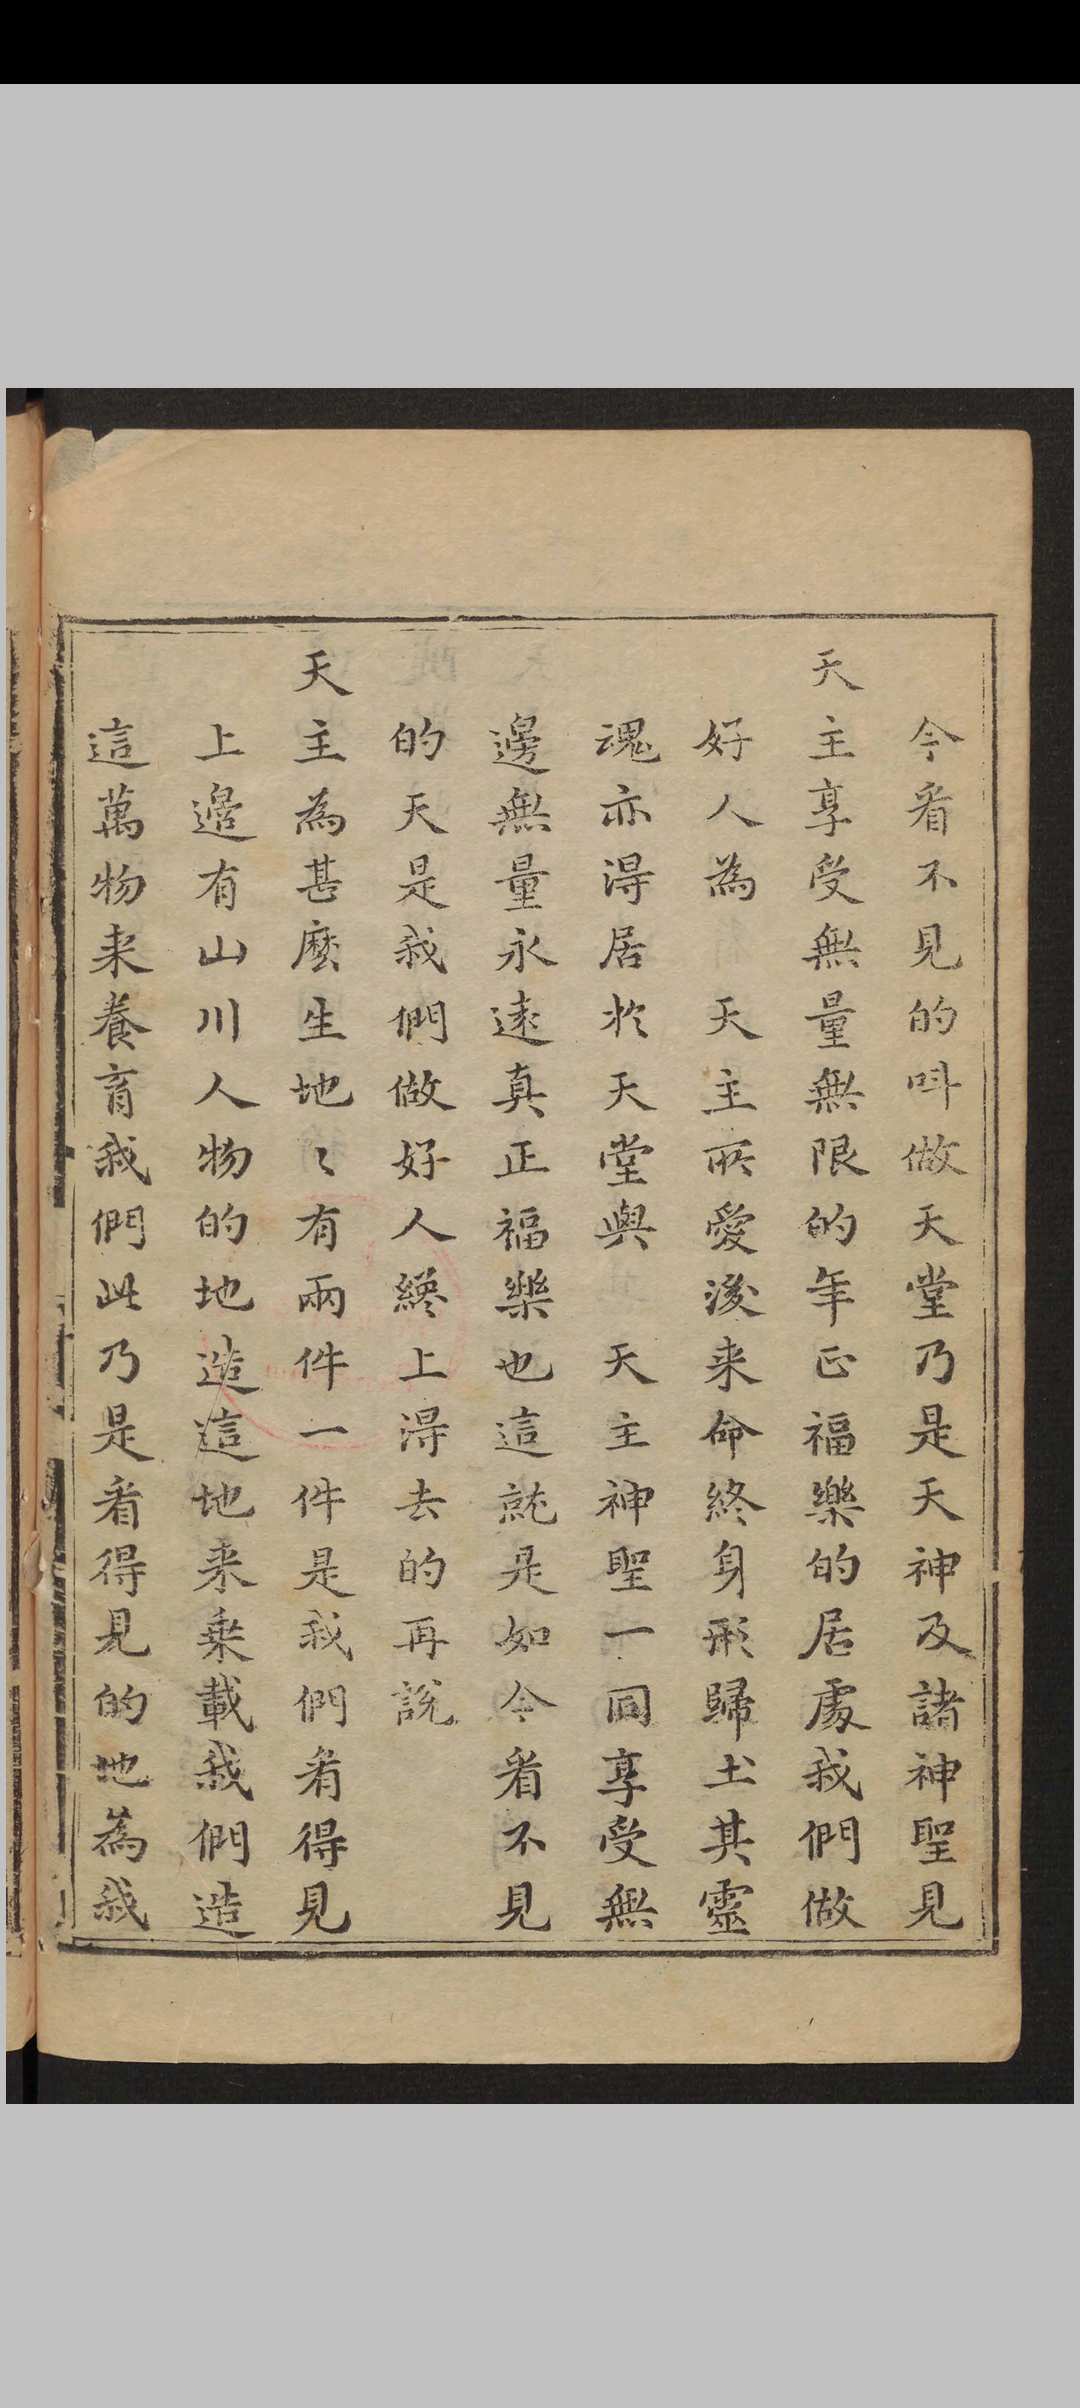 今看不見的呌做天堂乃是天神及諸神聖見
天主享受無量無限的年正福樂的居處我們做
好人為 天主所愛後来命終身形歸土其靈
魂亦得居於天堂與 天主神聖一同享受無
邊無量永遠真正福樂也這就是如今看不見
的天是我們做好人纔上得去的再說
天主為甚麼生地〻有兩件一件是我們看得見
上邊有山川人物的地造這地来乗載我們造
這萬物来養育我們此乃是看得見的地為我